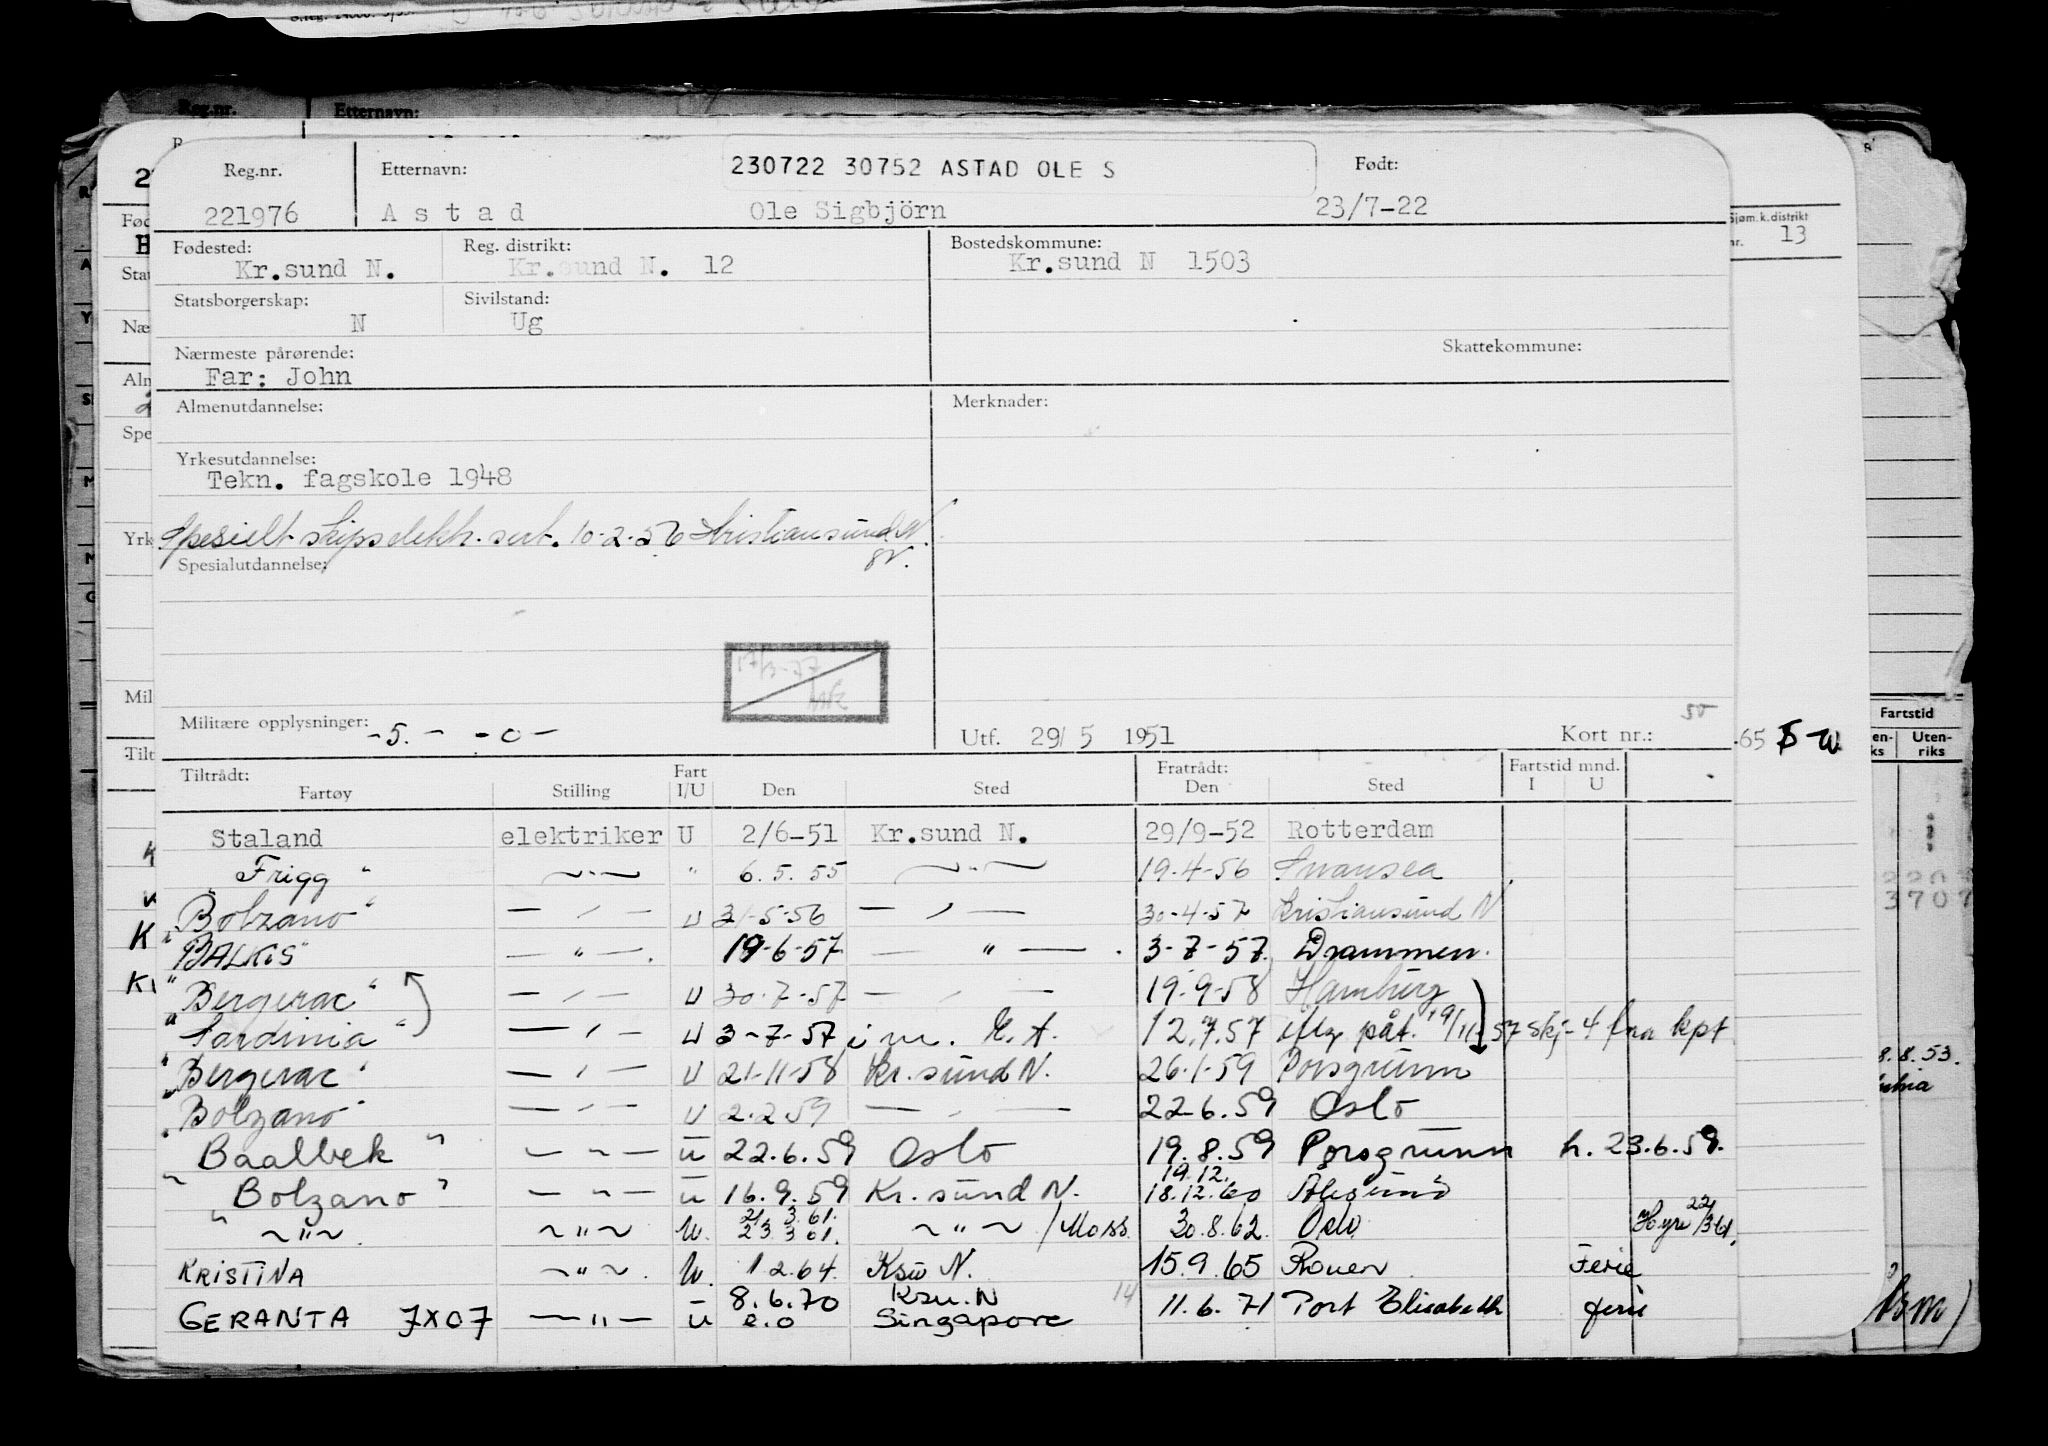 Reg.nr. Etternavn: 230722 30752 ASTAD OLE S Født:
221976 Astad Ole Sigbjörn 23/7-22
Fødested: Reg. distrikt: Bostedskommune:
Kr.sund N. Kr.sund N. 12 Kr.sund N 1503
Sjøm.k.distrikt
nr. 13
Statsborgerskap: Sivilstand:
N Ug
Nærmeste pårørende: Skattekommune:
Far: John
Almenutdannelse: Merknader:
Yrkesutdannelse:
Tekn. fagskole 1948
Spesielt skipselektr. sert. 10-2-56 Kristiansund N.
Spesialutdannelse:
17/3-77
Militære opplysninger: -5.- -0- Utf. 29/5 1951 Kort nr.: 65
Tiltrådt: Fart Fratrådt: Fartstid mnd.
Fartøy Stilling I/U Den Sted Den Sted I U
Staland elektriker U 2/6-51 Kr.sund N. 29/9-52 Rotterdam
"Frigg" —"— " 6.5.55 —"— 19-4-56 Swansea
"Bolzano" —"— U 31-5-56 —"— 30-4-57 Kristiansund N
"BALKIS" —"— 19-6-57 —"— 3-7-57. Drammen.
"Bergerac" —"— U 30-7-57 —"— 19-9-58 Hamburg
"Sardinia" —"— U 3-7-57 i m. E.A. 12.7.57 iflg påt. 19/11-57 skj-4 fra kpt
"Bergerac" —"— U 21-11-58 Kr.sund N. 26.1.59 Porsgrunn
"Bolzano" —"— U 2.2.59 —"— 22-6.59 Oslo
Baalbek " —"— U 22.6.59 Oslo 19.8.59 Porsgrunn h. 23.6.59.
"Bolzano" —"— U 16.9.59 Kr.sund N. 19.12. 18.12.60 Ålesund
" ~"~ ~"~ U. 21.3.61. 23.3.61. ~"~ /Moss 30.8.62. Oslo Hyre 22/3 61.
KRISTINA ~"~ U. 1 2.64. Ksu N. 15.9.65 Rouen Ferie
GERANTA 7X07 —"— U 8.6.70 e.o Ksu.N Singapore 14 11.6.71 Port Elisabeth ferie